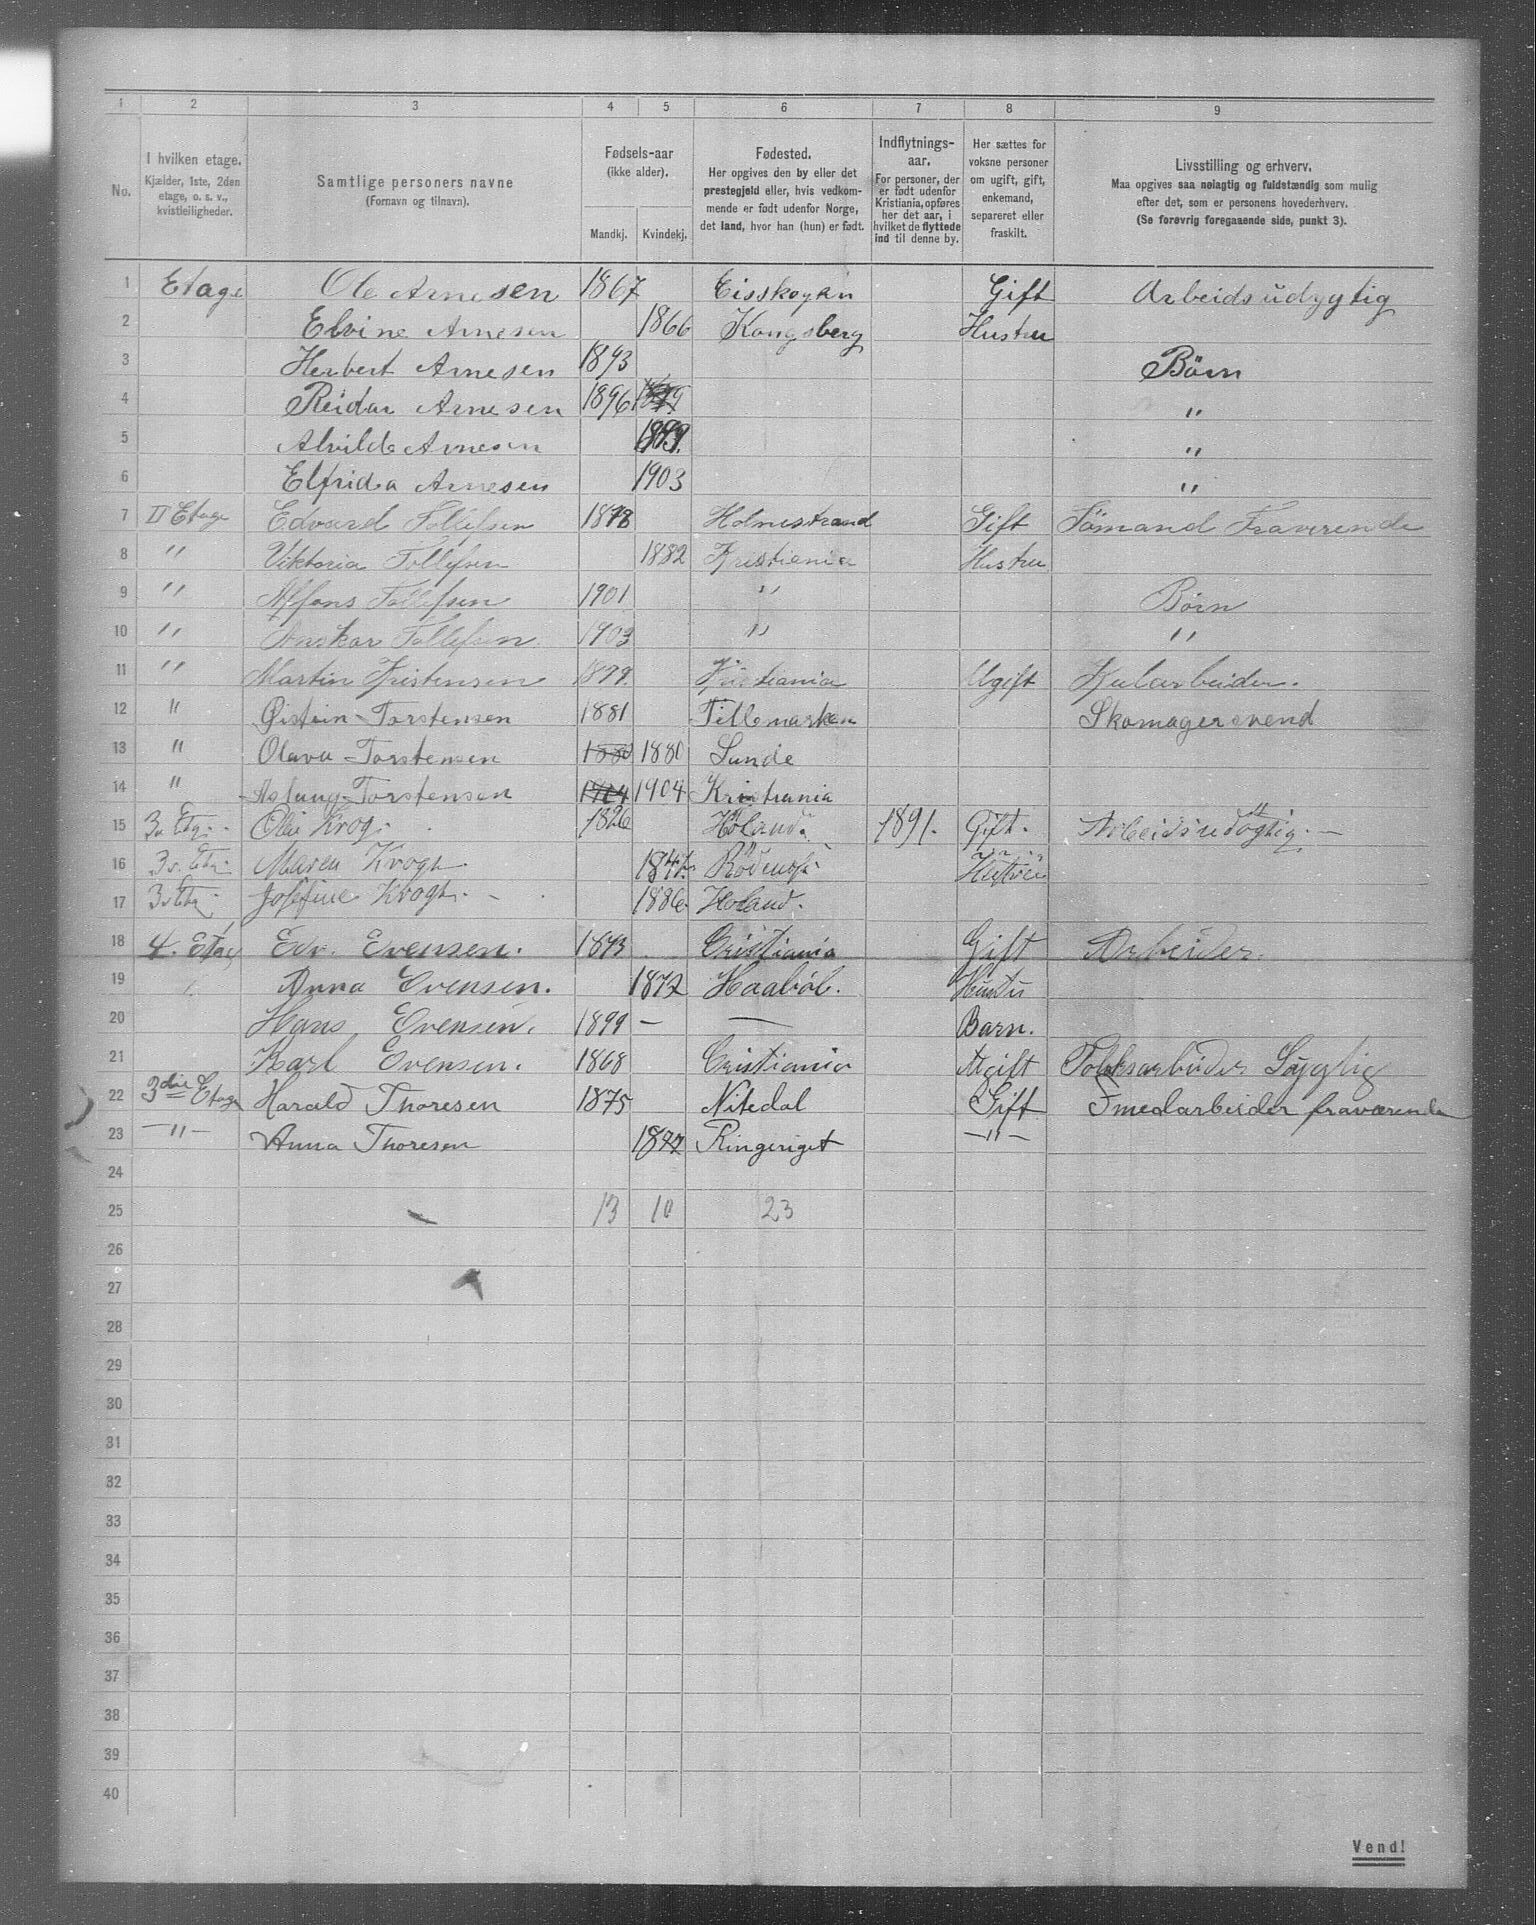 1 2 3 4 5 6 7 8 9
No.
I hvilken etage.
Kjælder, 1ste, 2den
etage, o. s. v.,
kvistleiligheder.
Samtlige personers navne
(Fornavn og tilnavn).
Fødsels-aar
(ikke alder).
Mandkj. Kvindekj.
Fødested.
Her opgives den by eller det
prestegjeld eller, hvis vedkom-
mende er født udenfor Norge,
det land, hvor han (hun) er født.
Indflytnings-
aar.
For personer, der
er født udenfor
Kristiania, opføres
her det aar, i
hvilket de flyttede
ind til denne by.
Her sættes for
voksne personer
om ugift, gift,
enkemand,
separeret eller
fraskilt.
Livsstilling og erhverv.
Maa opgives saa nøiagtig og fuldstændig som mulig
efter det, som er personens hovederhverv.
(Se forøvrig foregaaende side, punkt 3).
1 Etage Ole Arnesen 1867 Gift Arbeidsudygtig
2 Elvine Arnesen 1866 Kongsberg Hustru
3 Herbert Arnesen 1893 Børn
4 Reidar Arnesen 1896 "
5 Alvilde Arnesen "
6 Elfrida Arnesen 1903 "
7 II Etage Edvard Tollefsen 1878 Holmestrand Gift Sömand Fraverende
8 " Viktoria Tollefsen 1882 Kristiania Hustru
9 " Alfons Tollefsen 1901 " Børn
10 " Anskar Tollefsen 1903 " "
11 " Martin Kristensen 1899 Kristiania Ugift Kularbeider.
12 " Øistein Torstensen 1881 Tillemarken Skomagersvend
13 " Olava Torstensen 1880 1880 Sunde
14 " Aslaug Torstensen 1904 1904 Kristiania
15 3. Etg. Krog. 1826 Høland. 1891. Gift. Arbeidsudögtig.
16 3. Etg. Maren Krogh. Hustru
17 3 Etg Josefine Krogh. 1886. Holand.
18 4. Etag Edv. Evensen. 1873 Cristiania Gift Arbeider.
19 Anna Evensen. 1872 Haabøl. Hustu
20 Hans Evensen. 1899 — — Barn.
21 Karl Evensen. 1868 Cristiania Ugift
22 3die Etage Harald Thoresen 1875 Nitedal Gift Smedarbeider fraværende
23 —"— Anna Thoresen 1877 Ringeriget —"—
24
25 13 10 23
26
27
28
29
30
31
32
33
34
35
36
37
38
39
40
Vend!